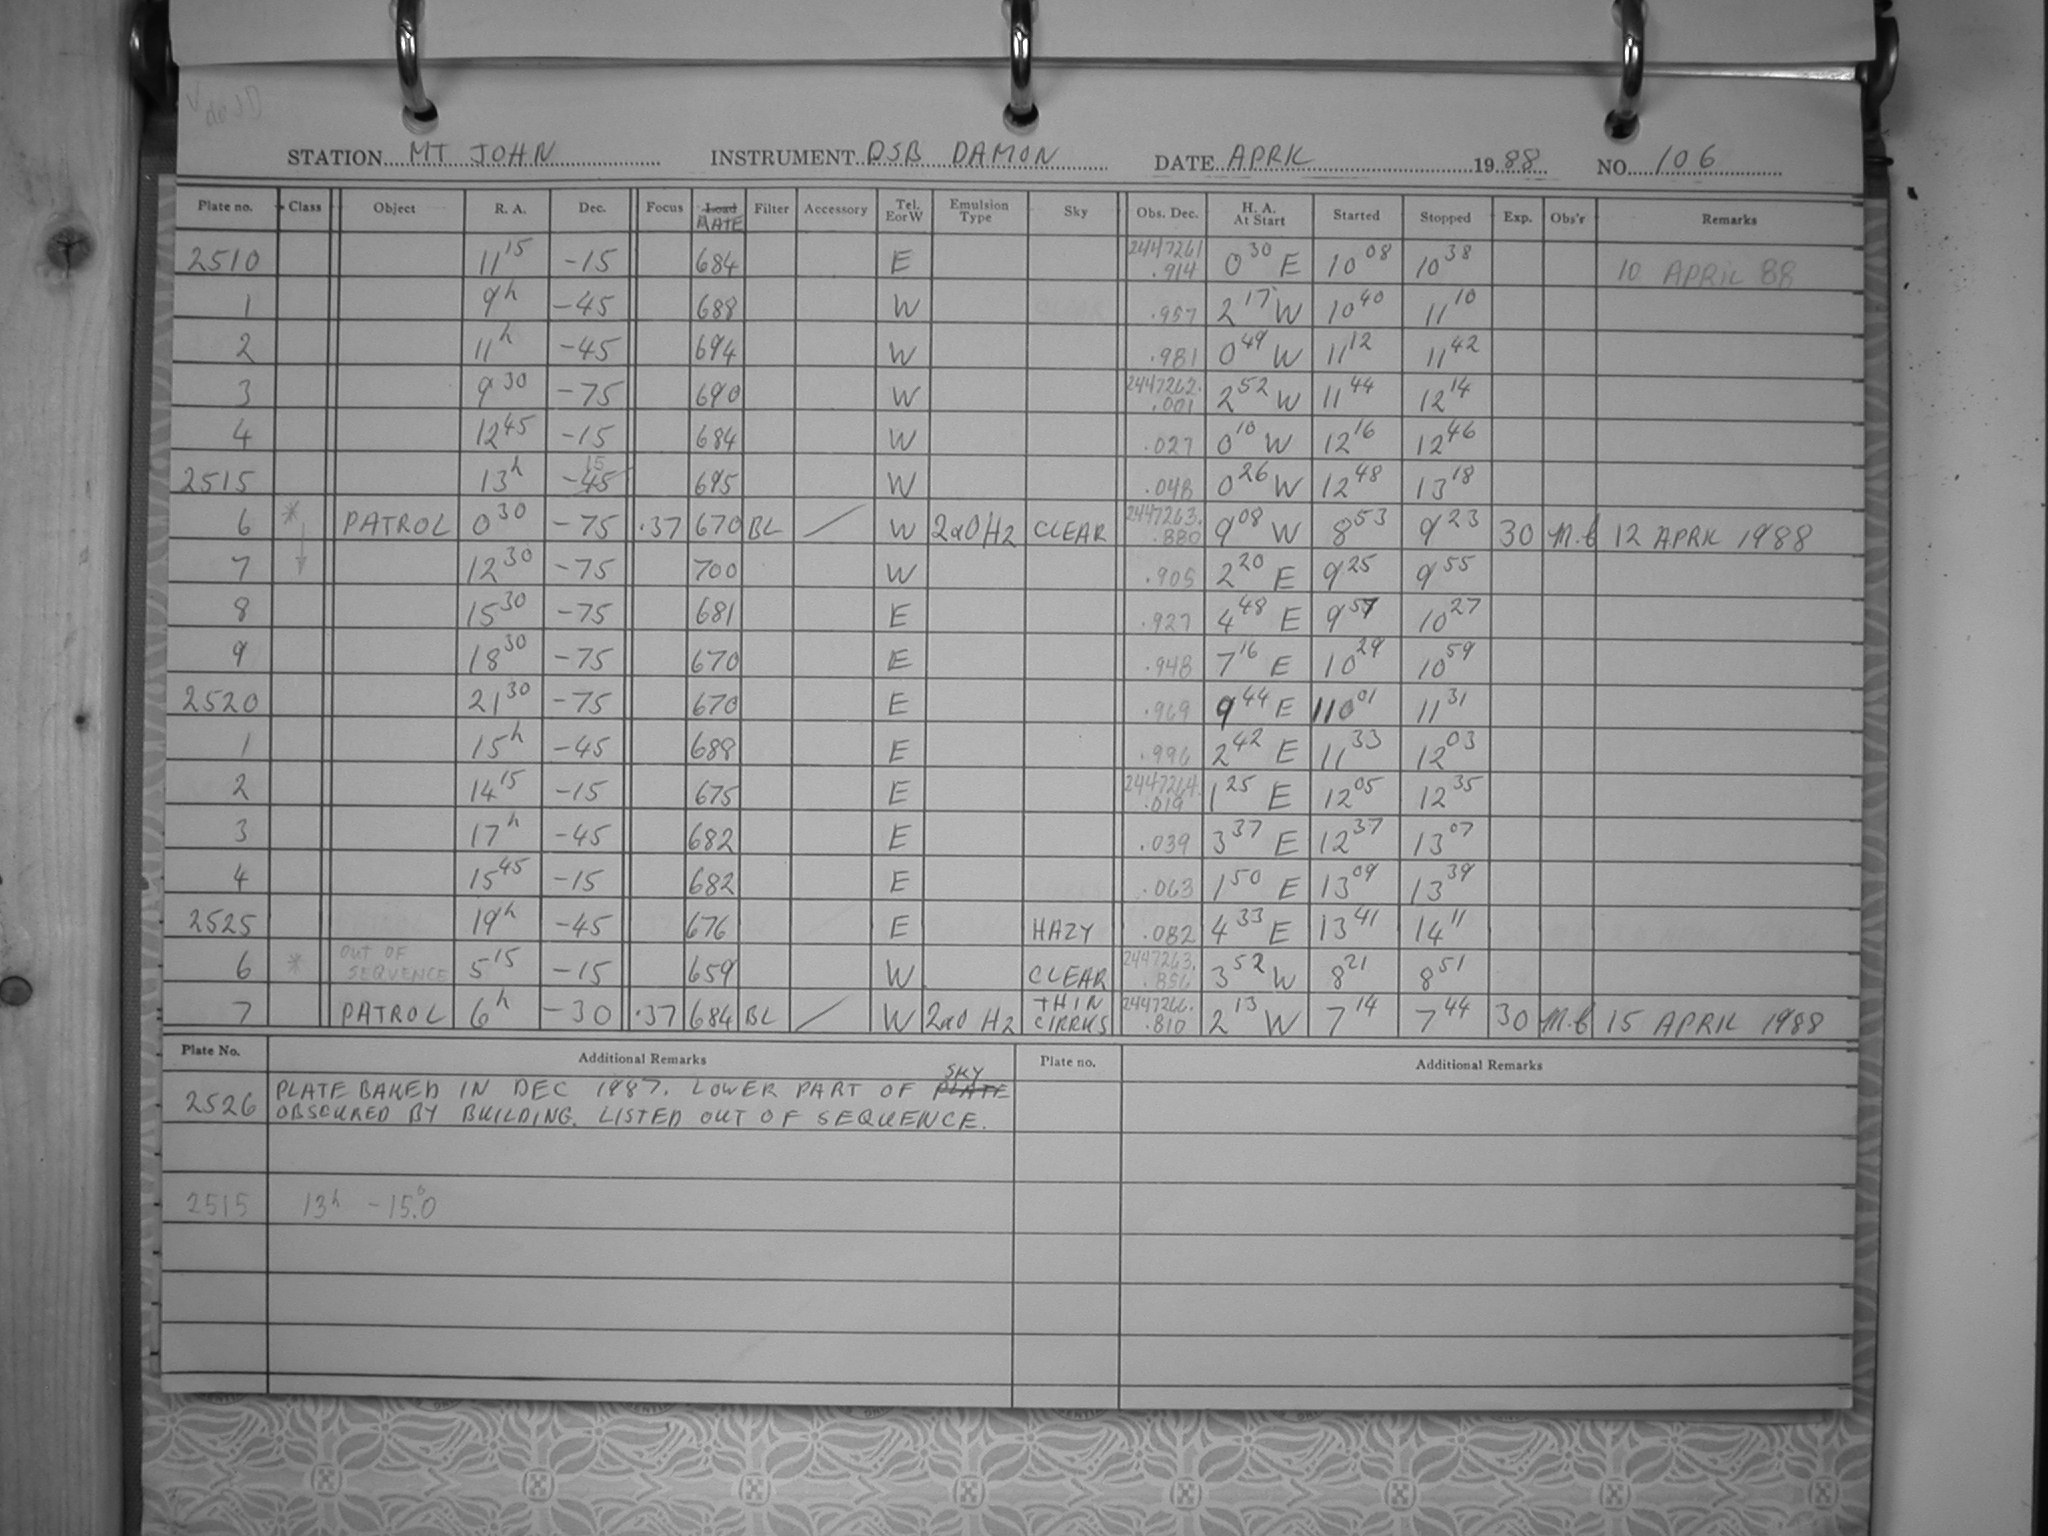 V de JD
STATION MT JOHN INSTRUMENT DSB DAMON DATE APRIL 1988 NO. 106
Plate no. Class Object R. A. Dec. Focus Load RATE Filter Accessory Tel. E or W Emulsion Type Sky Obs. Dec. H. A. At Start Started Stopped Exp. Obs'r Remarks
2510 11 15 -15 684 E 2447261 .914 0 30 E 10 08 10 38 10 APRIL 88
1 9h -45 688 W .957 2 17 W 10 40 11 10
2 11h -45 694 W .981 0 49 W 11 12 11 42
3 9 30 -75 690 W 2447262. .001 2 52 W 11 44 12 14
4 12 45 -15 684 W .027 0 10 W 12 16 12 46
2515 13h -45 15 695 W .048 0 26 W 12 48 13 18
6 * PATROL 0 30 -75 .37 670 BL / W 2a0 H2 CLEAR 2447263. .880 9 08 W 8 53 9 23 30 M.C 12 APRIL 1988
7 12 30 -75 700 W .905 2 20 E 9 25 9 55
8 15 30 -75 681 E .927 4 48 E 9 57 10 27
9 18 30 -75 670 E .948 7 16 E 10 29 10 59
2520 21 30 -75 670 E .969 9 44 E 11 01 11 31
1 15h -45 688 E .996 2 42 E 11 33 12 03
2 14 15 -15 675 E 2447264. .019 1 25 E 12 05 12 35
3 17h -45 682 E .039 3 37 E 12 37 13 07
4 15 45 -15 682 E .063 1 50 E 13 09 13 39
2525 19h -45 676 E HAZY .082 4 33 E 13 41 14 11
6 * OUT OF SEQUENCE 5 15 -15 659 W CLEAR 2447263. .856 3 52 W 8 21 8 51
7 PATROL 6h -30 .37 684 BL / W 2a0 H2 THIN CIRRUS 2447266. .810 2 13 W 7 14 7 44 30 M.C 15 APRIL 1988
Plate No. Additional Remarks Plate no. Additional Remarks
2526 PLATE BAKED IN DEC 1987. LOWER PART OF PLATE SKY
OBSCURED BY BUILDING. LISTED OUT OF SEQUENCE.
2515 13h -15.°0